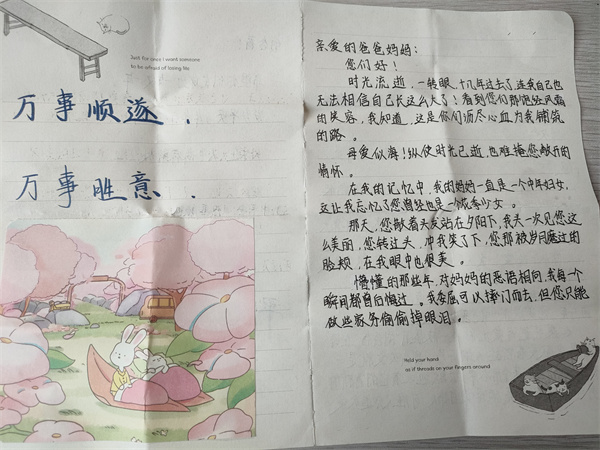 Just for once I want someone
to be afraid of losing Me
万事顺遂.
万事胜意.
亲爱的爸爸妈妈:
您们好!
时光流逝,一转眼,十几年过去了,连我自己也
无法相信自己长这么大了!看到您们那饱经风霜
的笑容,我知道,这是你们须尽心血为我铺筑
的路。
母爱似海!纵使时光已逝,也难掩您敞开的
情怀。
在我的记忆中,我的妈妈一直是一个中年妇女,
这让我忘忆了您曾经也是一个优秀少女。
那天,您散着头发站在夕阳下,我头一次见您这
么美丽,您转过头,冲我笑了下,您那被岁月磨过的
脸颊,在我眼中也很美。
懵懂的那些年,对妈妈的恶语相向,我每一个
瞬间都在悔过。我委屈可以摔门而去,但您只能
做些家务偷偷掉眼泪。
Held your hand
as if threads on your fingers around